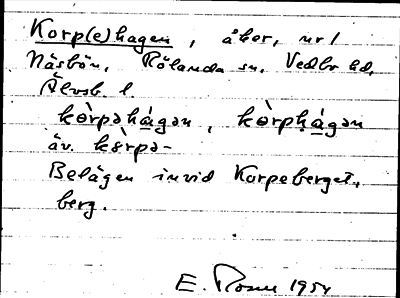 Korp(e)hagen, åker, nr 1
Näsbön, Rölanda sn, Vedbo hd,
Älvsb. l.
kòrpəhágən, kòrphágən
äv. kòrpə-
Belägen invid Korpeberget,
berg.
E. Rosell 1954